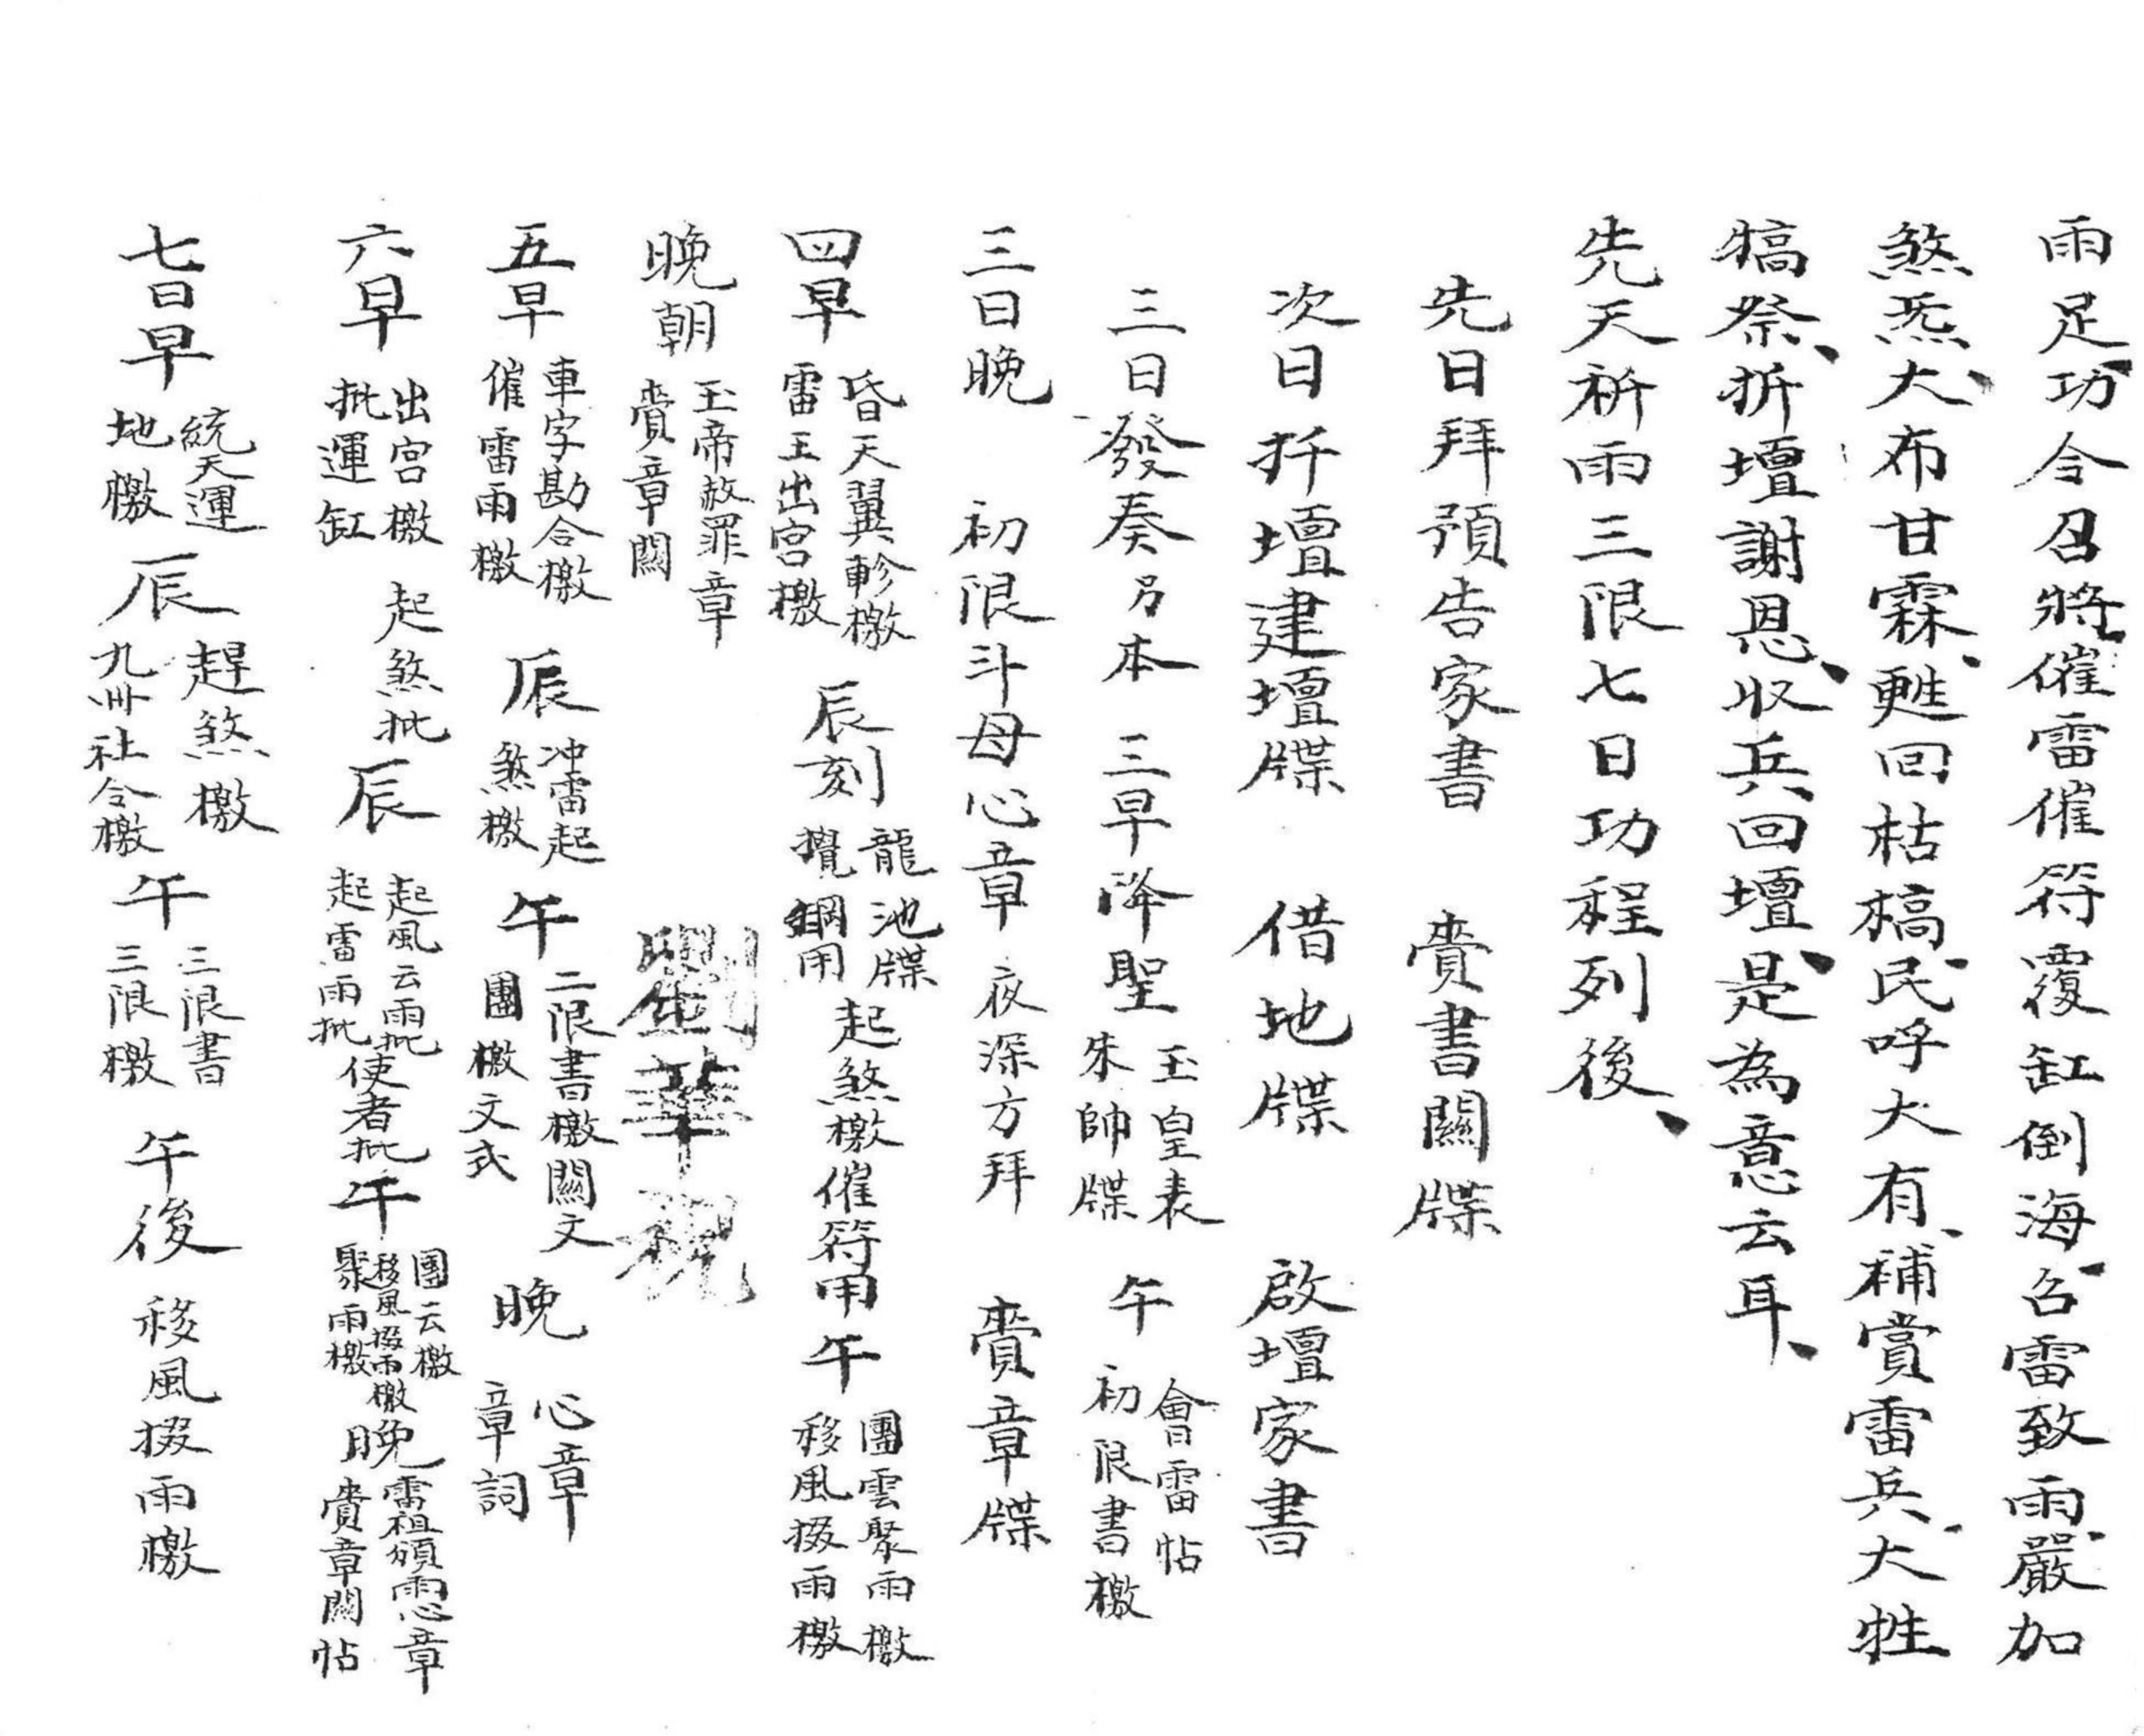 雨足功令召將催雷催符覆缸倒海召雷致雨嚴加
煞炁大布甘霖甦回枯槁民呼大有補賞雷兵大牲
犒祭折壇謝恩収兵回壇是為意云耳
先天祈雨三限七日功程列後
先日拜預告家書 賫書關牒
次日扦壇建壇牒 借地牒 啟壇家書
三日發奏另本 三早降聖 玉皇表 朱帥牒 午 會雷帖 初限書檄
三日晚 初限斗母心章 夜深方拜 賫章牒
四早 昏天翼軫檄 雷王出宮檄 辰刻 龍池牒 攪鋼用 起煞檄催符用 午 團雲聚雨檄 移風掇雨檄
晚朝 玉帝赦罪章 賫章關
五早 車字勘合檄 催雷雨檄 辰 冲雷起煞檄 午 二限書檄關文 團檄文式 晚 心章 章詞
六早 出宮檄 批運缸 起煞批 辰 起風云雨批 起雷雨批 使者批 午 團云檄 移風掇雨檄 聚雨檄 晚 雷祖頒雨心章 賫章關帖
七日早 統天運地檄 辰 趕煞檄 九州社令檄 午 三限書 三限檄 午後 移風掇雨檄